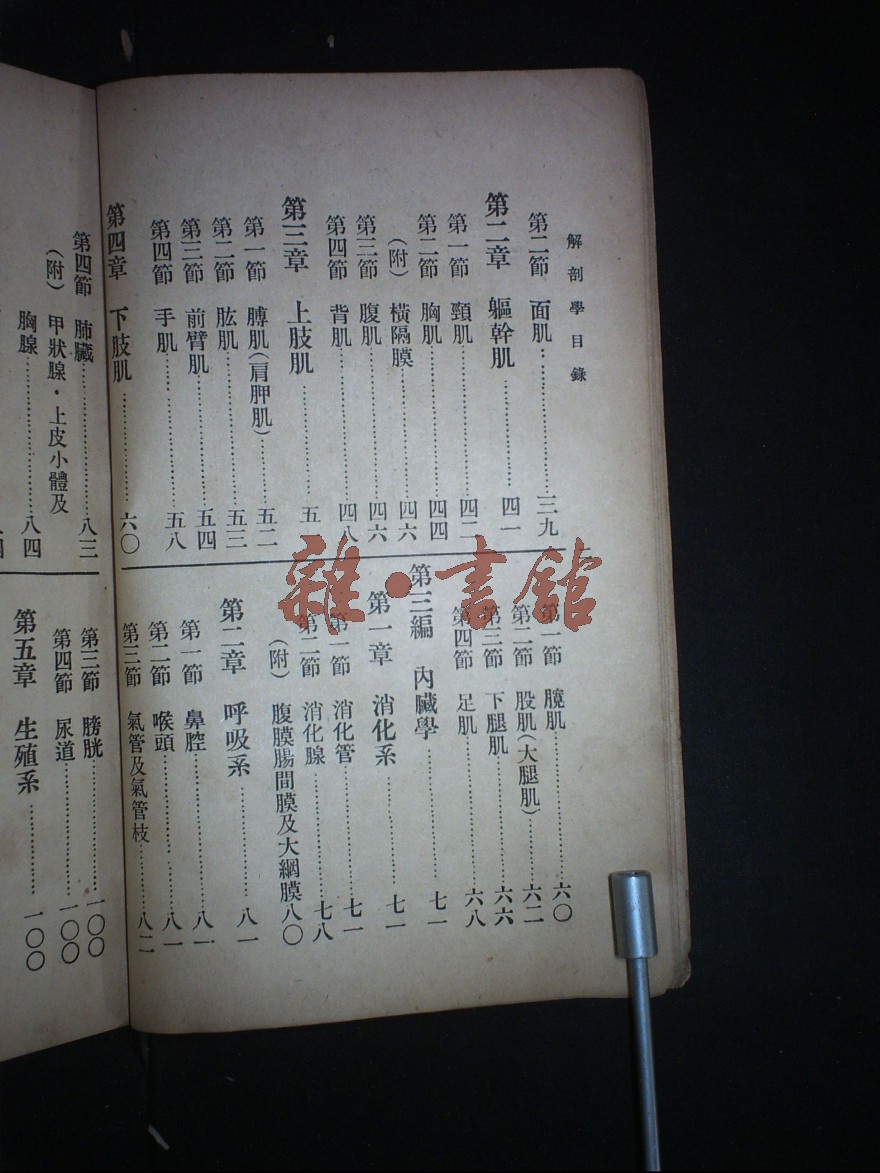 解剖學目錄
第二節 面肌…………三九
第二章 軀幹肌…………四一
第一節 頸肌…………四二
第二節 胸肌…………四四
(附) 橫隔膜…………四六
第三節 腹肌…………四六
第四節 背肌…………四八
第三章 上肢肌…………五一
第一節 膊肌(肩胛肌)…………五二
第二節 肱肌…………五三
第三節 前臂肌…………五四
第四節 手肌…………五八
第四章 下肢肌…………六〇
第一節 臗肌…………六〇
第二節 股肌(大腿肌)…………六二
第三節 下腿肌…………六六
第四節 足肌…………六八
第三編 內臟學…………七一
第一章 消化系…………七一
第一節 消化管…………七一
第二節 消化腺…………七八
(附) 腹膜腸間膜及大網膜八〇
第二章 呼吸系…………八一
第一節 鼻腔…………八一
第二節 喉頭…………八一
第三節 氣管及氣管枝…………八二
第四節 肺臟…………八三
(附) 甲狀腺・上皮小體及
胸腺…………八四
第三節 膀胱…………一〇〇
第四節 尿道…………一〇〇
第五章 生殖系…………一〇〇
雜・書館